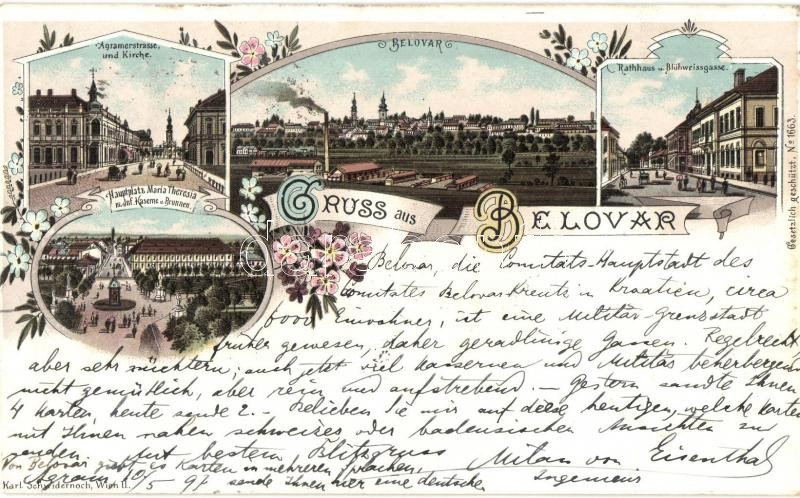 Agramerstrasse,
und Kirche.
BELOVAR
Rathhaus u. Blühweissgasse.
Hauptplatz Maria Theresia
m. Inf. Kaserne u. Brunnen.
GRUSS aus BELOVAR
Gesetzlich geschützt. No 1663.
Belovar, die Comitats-Hauptstadt des
Comitates Belovar Kreutz in Kroatien, circa
6000 Einwohner, ist eine Militär-Grenzstadt
früher gewesen, daher geradlinige Gassen. Regelrecht
aber sehr nüchtern; auch jetzt viel Kasernen und Militär beherbergend
nicht gemütlich, aber rein und aufstrebend. – Gestern sandte Ihnen
4 Karten, heute sende 2. – Belieben Sie mir auf diese heutigen, welche Karten
mit Ihnen nahen schweizer oder badensischen Ansichten zu
senden. Mit bestem Blitzgruss
Von Belovar giebt es Karten in mehreren Sprachen, Milan von Eisenthal
Agram 10/5 97 sende Ihnen hier eine deutsche Ingenieur
Karl Schwidernoch, Wien II.